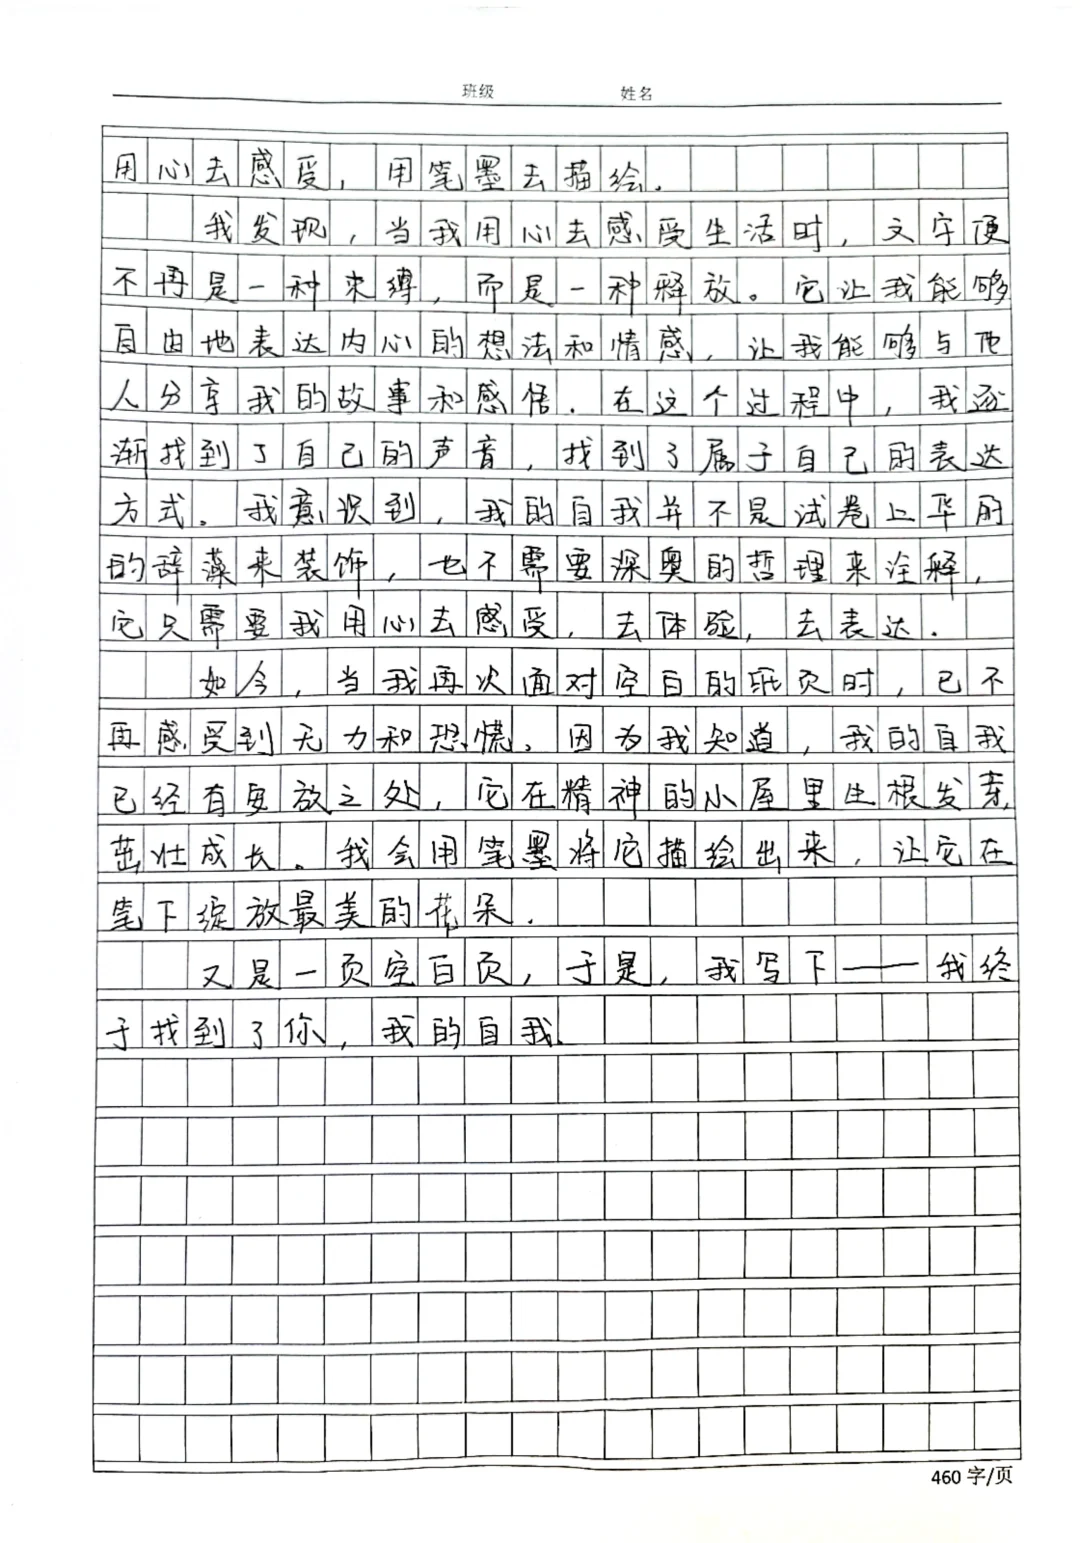 班级 姓名
用心去感受，用笔墨去描绘.
我发现，当我用心去感受生活时，文字便
不再是一种束缚，而是一种释放。它让我能够
自由地表达内心的想法和情感，让我能够与他
人分享我的故事和感悟.在这个过程中，我逐
渐找到了自己的声音，找到了属于自己的表达
方式。我意识到，我的自我并不是试卷上华丽
的辞藻来装饰，也不需要深奥的哲理来诠释，
它只需要我用心去感受，去体验，去表达.
如今，当我再次面对空白的纸页时，已不
再感受到无力和恐慌.因为我知道，我的自我
已经有安放之处，它在精神的小屋里生根发芽,
茁壮成长。我会用笔墨将它描绘出来，让它在
笔下绽放最美的花朵.
又是一页空白页，于是，我写下——我终
于找到了你，我的自我.
460字/页